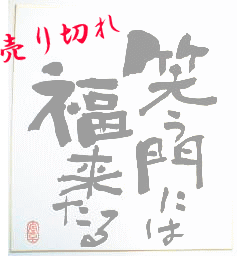 売り切れ
笑う門には
福来たる